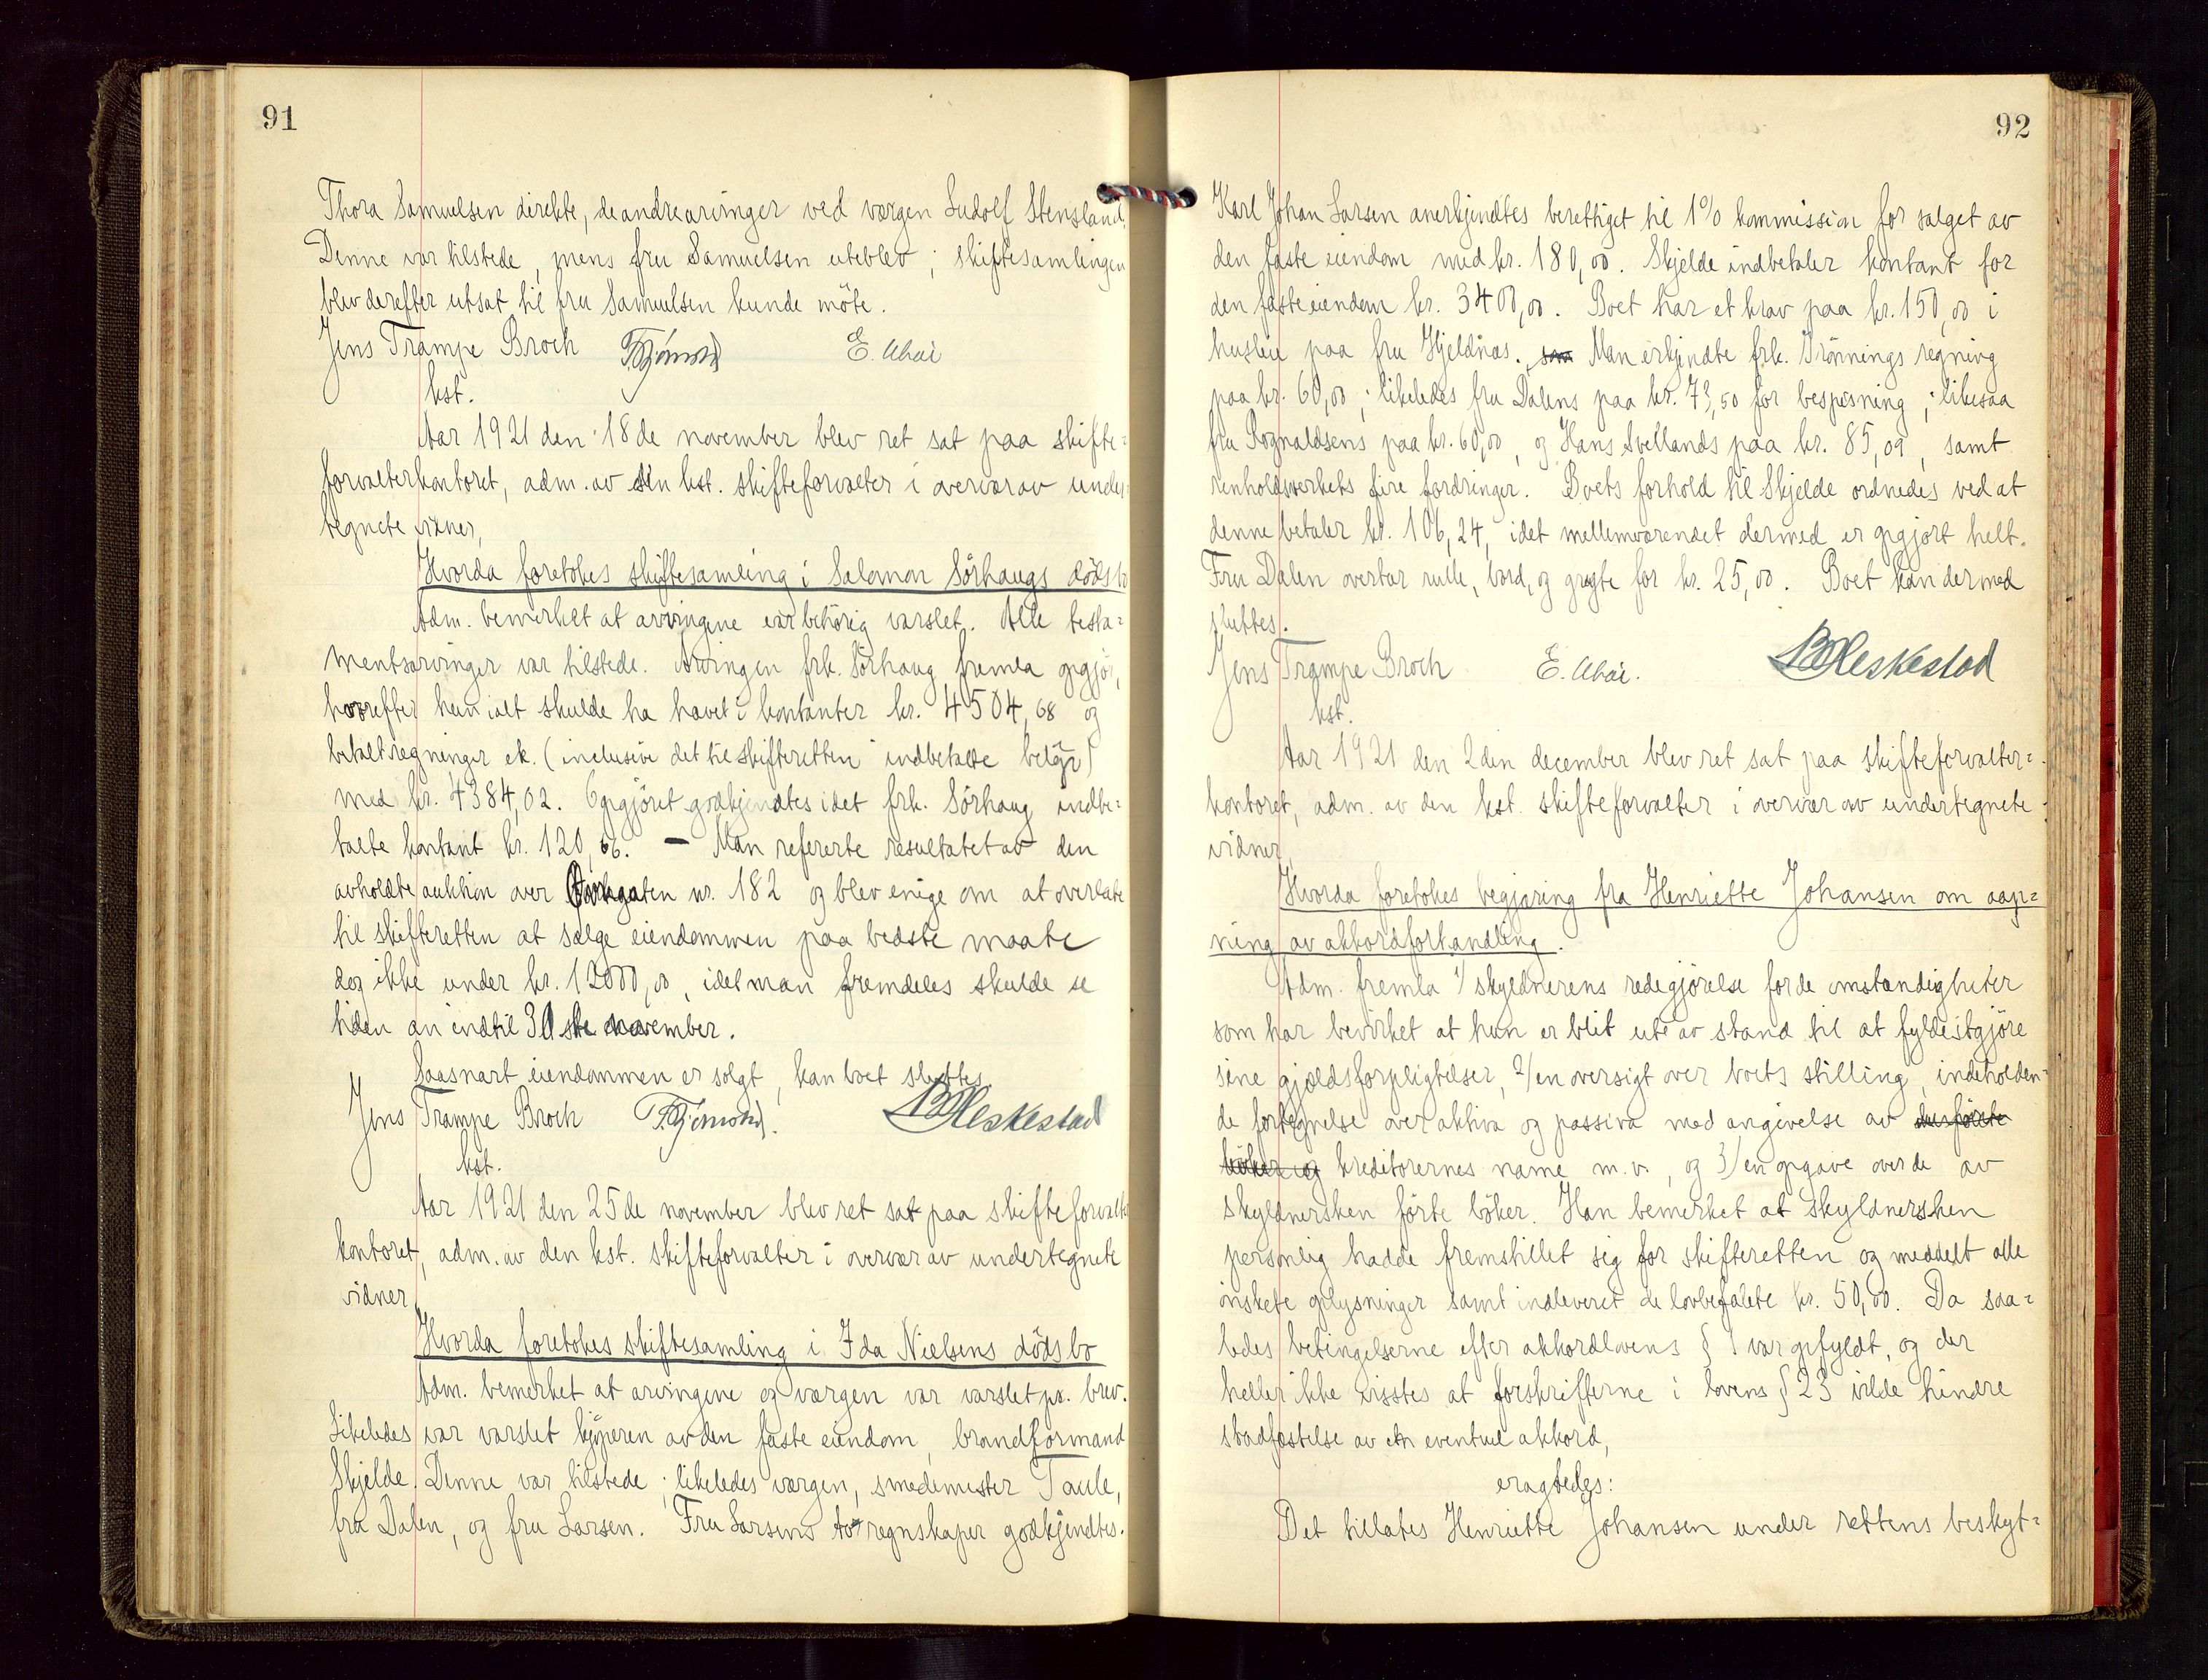 91
Thora Samuelsen direkte, de andre arvinger ved værgen Ludolf Stensland.
Denne var tilstede, mens fru Samuelsen uteblev; skiftesamlingen
blev derefter utsat til fru Samuelsen kunde möte.
Jens Trampe Broch
kst.
Aar 1921 den 18de november blev ret sat paa skifte=
forvalterkontoret, adm. av den kst. skifteforvalter i overvær av under=
tegnete vidner,
Hvorda foretokes skiftesamling i Salomon Sörhaugs dödsbo
Adm. bemerket at arvingene var behörig varslet. Alle testa=
mentsarvinger var tilstede. Arvingen frk. Sörhaug fremla opgjör,
hvorefter hun ialt skulde ha havet i kontanter kr. 4504,68 og
betalt regninger ek. (inclusive det til skifteretten indbetalte belöp)
med kr. 4384,02. Opgjöret godkjendtes idet frk. Sörhaug indbe=
talte kontant kr. 120,66. — Man refererte resultatet av den
avholdte auktion over nr. 182 og blev enige om at overlate
til skifteretten at sælge eiendommen paa bedste maate
dog ikke under kr. 12000,00, idet man fremdeles skulde se
tiden an indtil 30ste november.
Saasnart eiendommen er solgt, kan boet sluttes.
Jens Trampe Broch B Heskestad
kst.
Aar 1921 den 25de november blev ret sat paa skifteforvalter
kontoret, adm. av den kst. skifteforvalter i overvær av undertegnete
vidner
Hvorda foretokes skiftesamling i Ida Nielsens dödsbo
Adm. bemerket at arvingene og værgen var varslet pr. brev.
Likeledes var varslet kjöperen av den faste eiendom, brandformand
Skjelde. Denne var tilstede; likeledes værgen, smedemester Taule,
fra Dalen, og fru Larsen. Fru Larsens to regnskaper godkjendtes.
92
Karl Johan Larsen anerkjendtes berettiget til 1% kommission for salget av
den faste eiendom med kr. 180,00. Skjelde indbetaler kontant for
den faste eiendom kr. 3400,00. Boet har et krav paa kr. 150,00 i
husleie paa fru Hjeldnæs. som Man erkjendte frk. Trönnings regning
paa kr. 60,00; likeledes fru Dalens paa kr. 73,50 for bespisning; likesaa
fru Rognaldsens paa kr. 60,00, og Hans Svellands paa kr. 85,09, samt
renholdsverkets fire fordringer. Boets forhold til Skjelde ordnedes ved at
denne betaler kr. 106,24, idet mellemværendet dermed er opgjort helt.
Fru Dalen overtar rulle, bord, og gryte for kr. 25,00. Boet kan dermed
sluttes.
Jens Trampe Broch B Heskestad
kst.
Aar 1921 den 2den december blev ret sat paa skifteforvalter=
kontoret, adm. av den kst. skifteforvalter i overvær av undertegnete
vidner
Hvorda foretokes begjæring fra Henriette Johansen om aap=
ning av akkordforhandling.
Adm. fremla 1/ skyldnerens redegjörelse for de omstændigheter
som har bevirket at hun er blit ute av stand til at fyldestgjöre
sine gjældsforpligtelser, 2/ en oversigt over boets stilling, indeholden=
de fortegnelse over aktiva og passiva med angivelse av de förte
böker og kreditorernes navne m.v., og 3/ en opgave over de av
skyldnersken förte böker. Han bemerket at skyldnersken
personlig hadde fremstillet sig for skifteretten og meddelt alle
önskete oplysninger samt indleveret de lovbefalete kr. 50,00. Da saa=
ledes betingelserne efter akkordlovens § 1 var opfyldt, og der
heller ikke visstes at forskrifterne i lovens § 23 vilde hindre
stadfæstelse av en eventuel akkord,
eragtedes:
Det tillates Henriette Johansen under rettens beskyt=